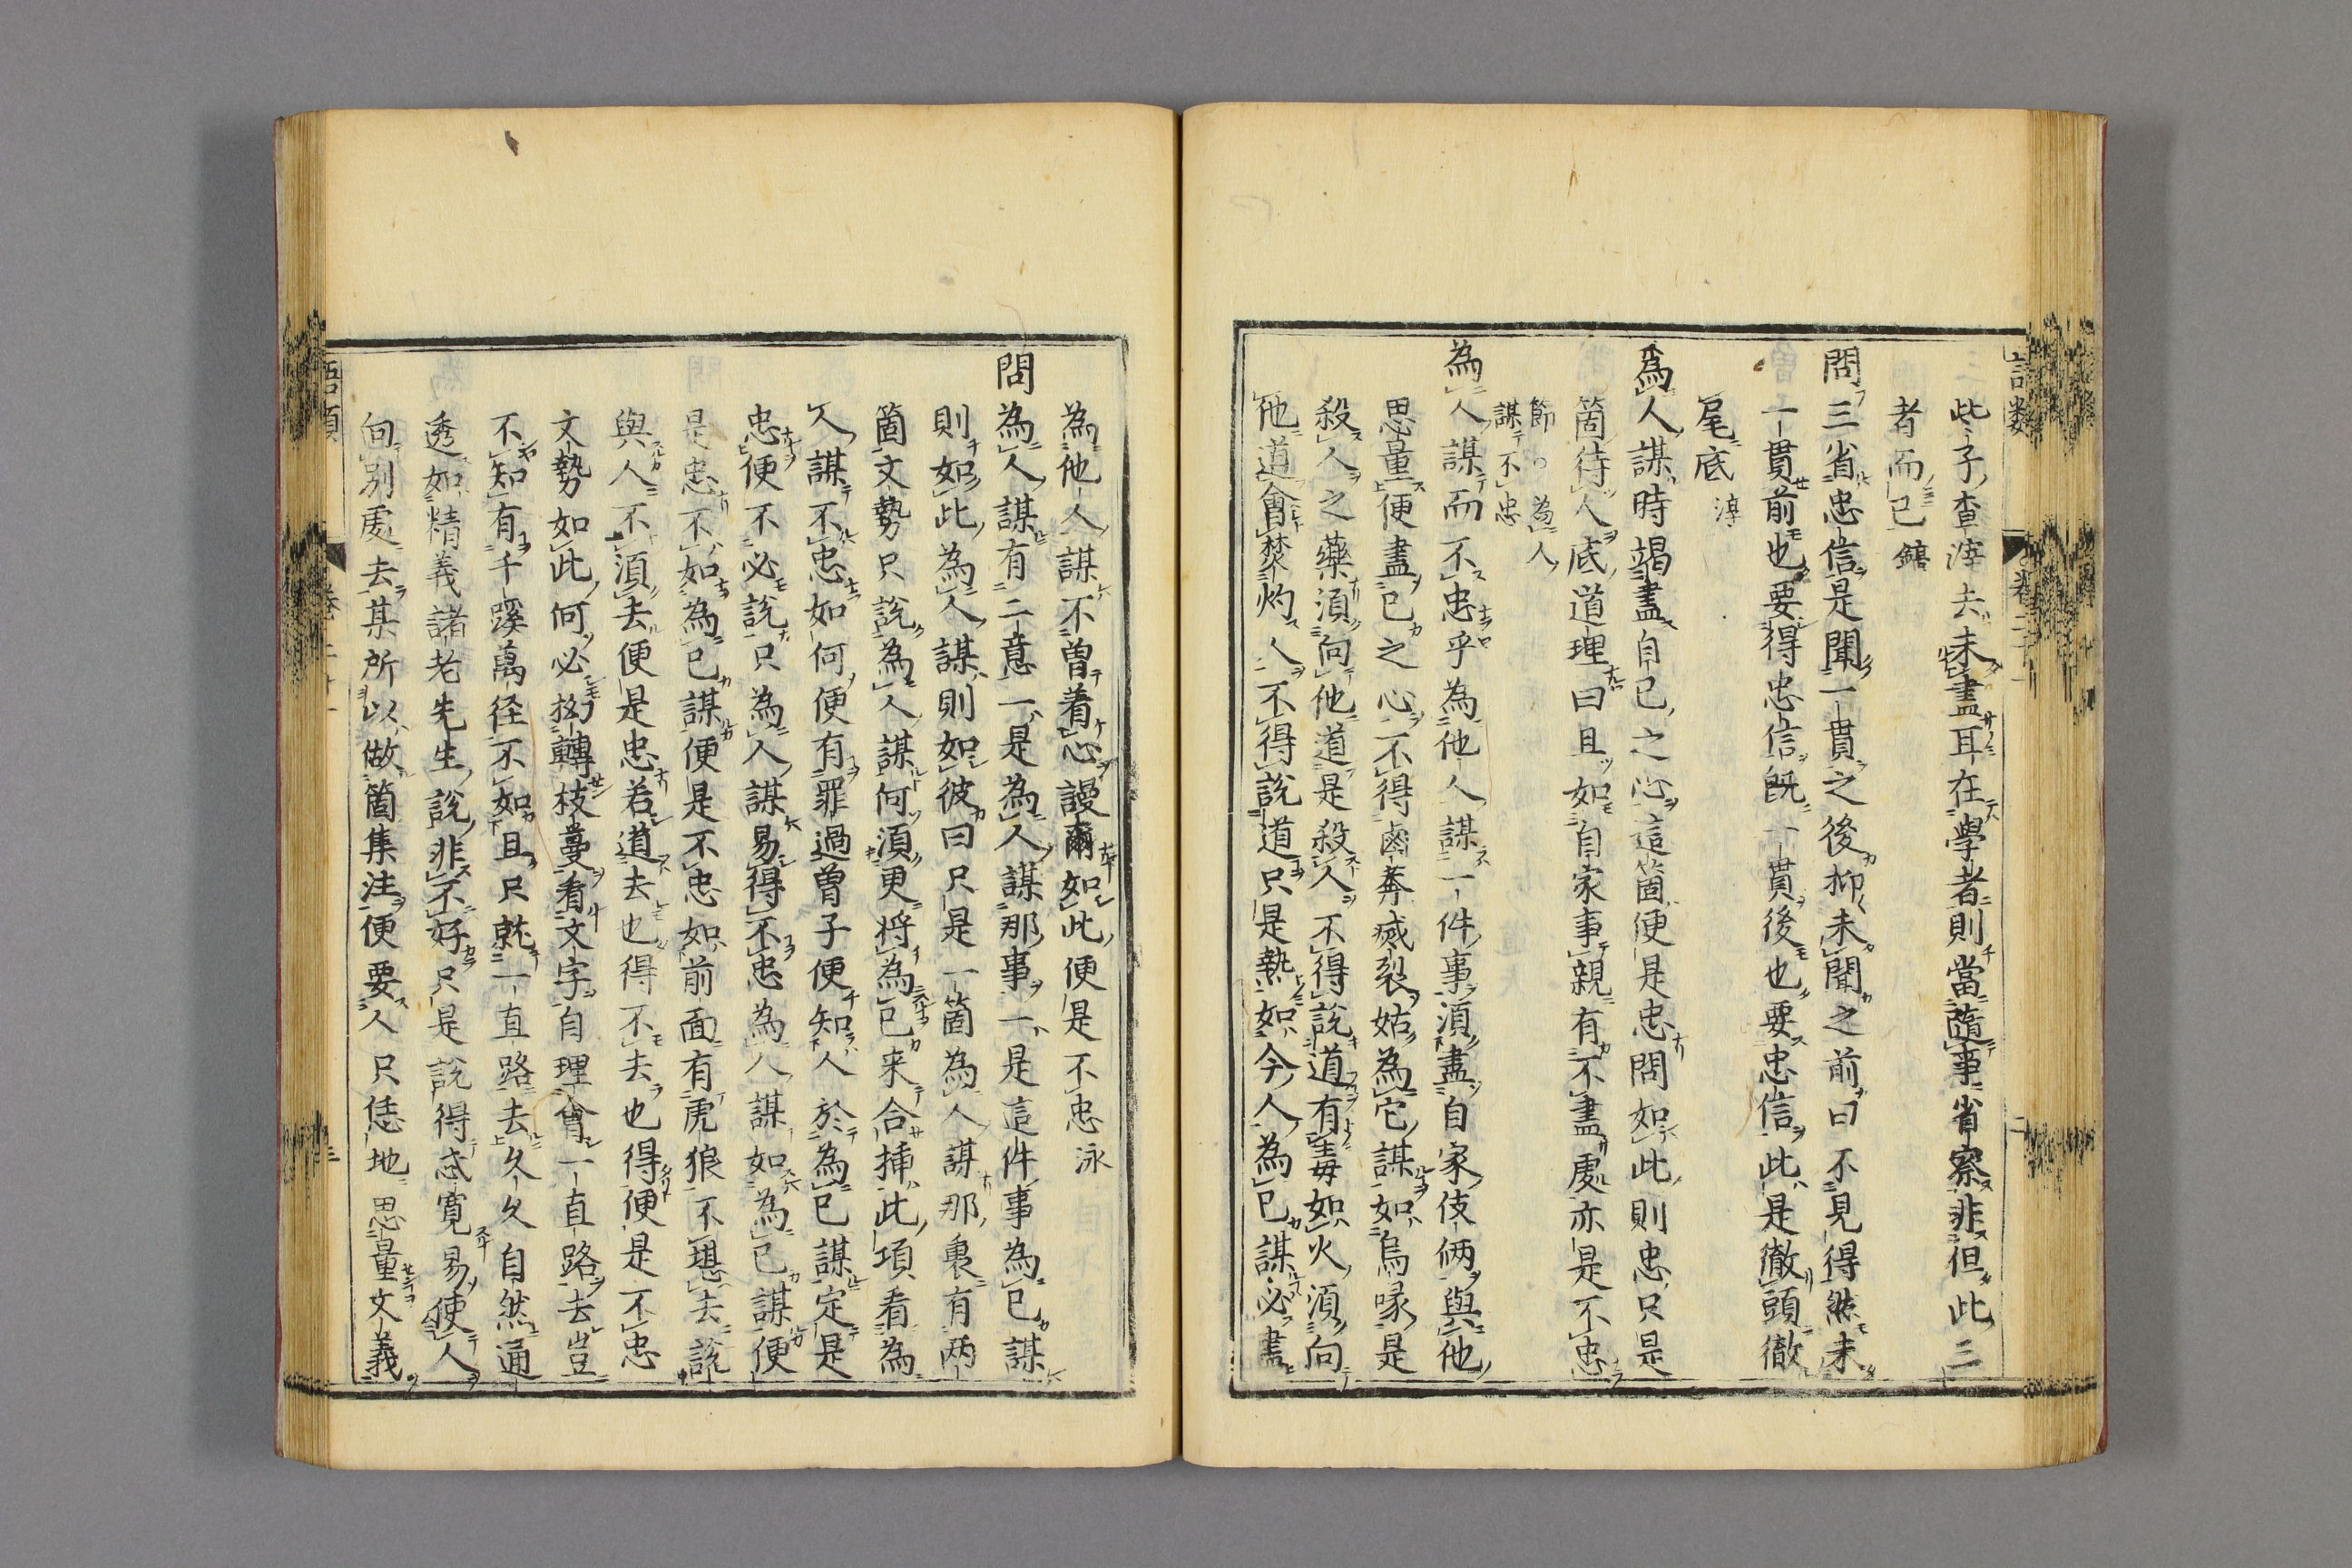 此子查滓去未盡耳在學者則當隨事省察非但此三
者而已 鎬
問三省忠信是聞一貫之後抑未聞之前曰不見得然未
一貫前也要得忠信既一貫後也要忠信此是徹頭徹
尾底 淳
為人謀時竭盡自己之心這箇便是忠問如此則忠只是
箇待人底道理曰且如自家事親有不盡處亦是不忠
節○為人
謀不忠
為人謀而不忠乎為他人謀一件事須盡自家伎倆與他
思量便盡己之心不得鹵莽滅裂姑為它謀如烏喙是
殺人之藥須向他道是殺人不得說道有毒如火須向
他道會焚灼人不得說道只是熱如今人為己謀必盡
為他人謀不曾着心謾爾如此便是不忠 泳
問為人謀有二意一是為人謀那事一是這件事為己謀
則如此為人謀則如彼曰只是一箇為人謀那裏有兩
箇文勢只說為人謀何須更将為己来合插此項看為
人謀不忠如何便有罪過曾子便知人於為己謀定是
忠便不必說只為人謀易得不忠為人謀如為己謀便
是忠不如為己謀便是不忠如前面有虎狼不堪去說
與人不須去便是忠若道去也得不去也得便是不忠
文勢如此何必拗轉枝蔓看文字自理會一直路去豈
不知有千蹊萬径不如且只就一直路去久久自然通
透如精義諸老先生說非不好只是說得忒寬易使人
向別處去某所以做箇集注便要人只恁地思量文義
語類
卷二十一